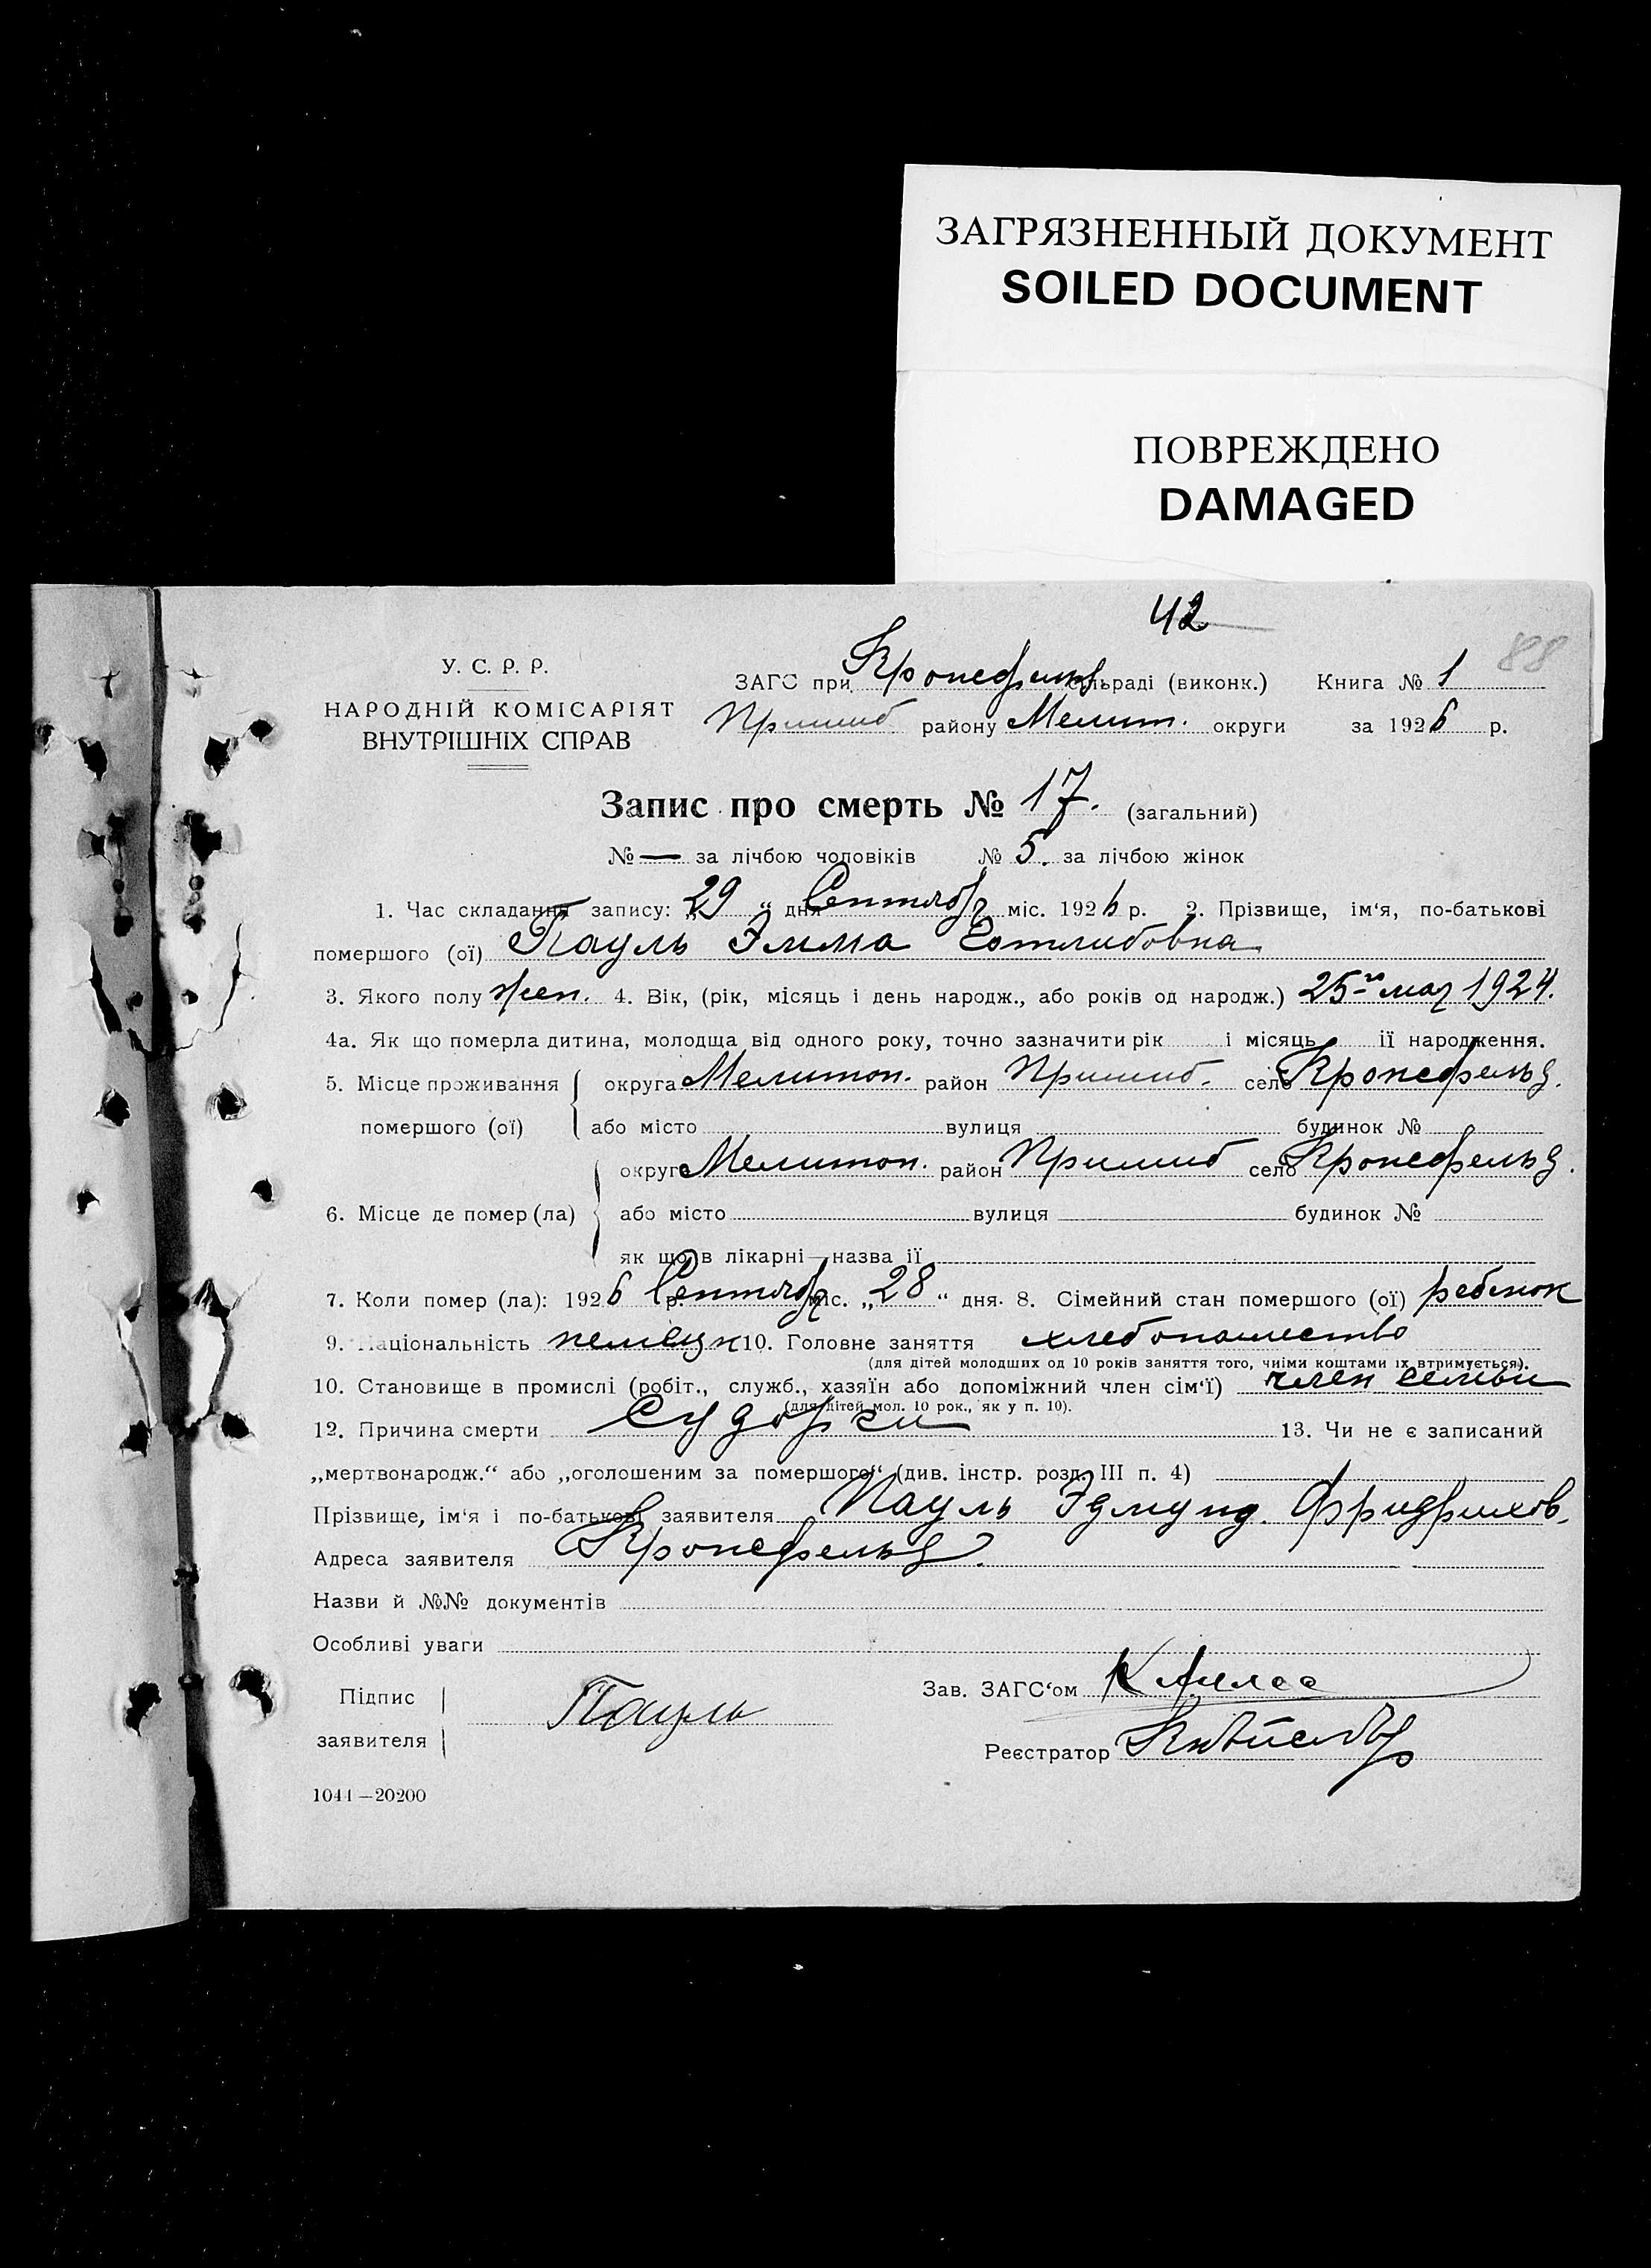 ЗАГРЯЗНЕННЫЙ ДОКУМЕНТ
SOILED DOCUMENT
ПОВРЕЖДЕНО
DAMAGED
42
88
У. С. Р. Р.
НАРОДНІЙ КОМІСАРІЯТ
ВНУТРІШНІХ СПРАВ
ЗАГС при Кронсфельд сільраді (виконк.) Книга № 1
Пришиб району Мелит. округи за 1926 р.
Запис про смерть № 17. (загальний)
№ — за лічбою чоловіків № 5. за лічбою жінок
1. Час складання запису: „29“ дня Сентябр міс. 1926 р. 2. Прізвище, ім‘я, по-батькові
помершого (ої) Пауль Эмма Готлибовна
3. Якого полу жен. 4. Вік, (рік, місяць і день народж., або років од народж.) 25го мая 1924.
4а. Як що померла дитина, молодща від одного року, точно зазначити рік і місяць її народження.
5. Місце проживання помершого (ої) округа Мелитоп. район Пришиб. село Кронсфельд.
або місто вулиця будинок №
6. Місце де помер (ла) округа Мелитоп. район Пришиб село Кронсфельд.
або місто вулиця будинок №
як що в лікарні—назва її
7. Коли помер (ла): 1926 р. Сентябр міс. „28“ дня. 8. Сімейний стан помершого (ої) ребенок
9. Національність немецк 10. Головне заняття хлебопашество
(для дітей молодших од 10 років заняття того, чиіми коштами їх втримується).
10. Становище в промислі (робіт., служб., хазяїн або допоміжний член сім‘ї) член семьи
(для дітей мол. 10 рок., як у п. 10).
12. Причина смерти Судорги 13. Чи не є записаний
„мертвонародж.“ або „оголошеним за помершого“ (див. інстр. розд. III п. 4)
Прізвище, ім‘я і по-батькові заявителя Пауль Эдмунд. Фридрихов.
Адреса заявителя Кронсфельд.
Назви й №№ документів
Особливі уваги
Підпис заявителя Пауль
Зав. ЗАГС‘ом
Реєстратор
1044—20200